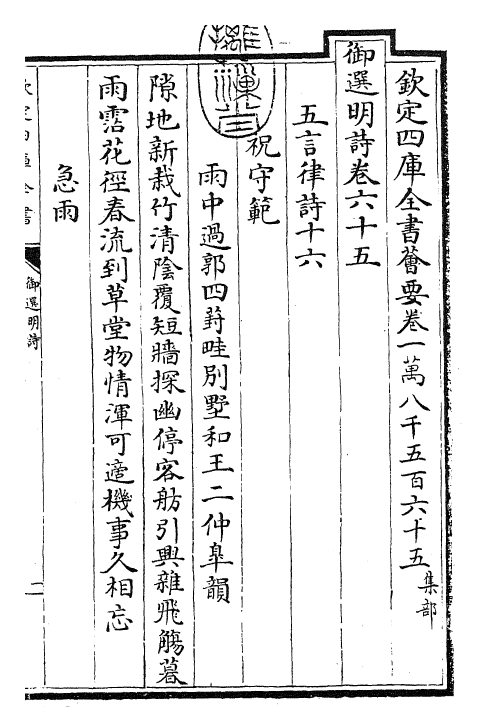 欽定四庫全書薈要卷一萬八千五百六十五 集部
御選明詩卷六十五
五言律詩十六
祝守範
雨中過郭四葑畦別墅和王二仲臯韻
隙地新栽竹清陰覆短牆探幽停客舫引興雜飛觴暮
雨霑花徑春流到草堂物情渾可適機事久相忘
急雨
御選明詩